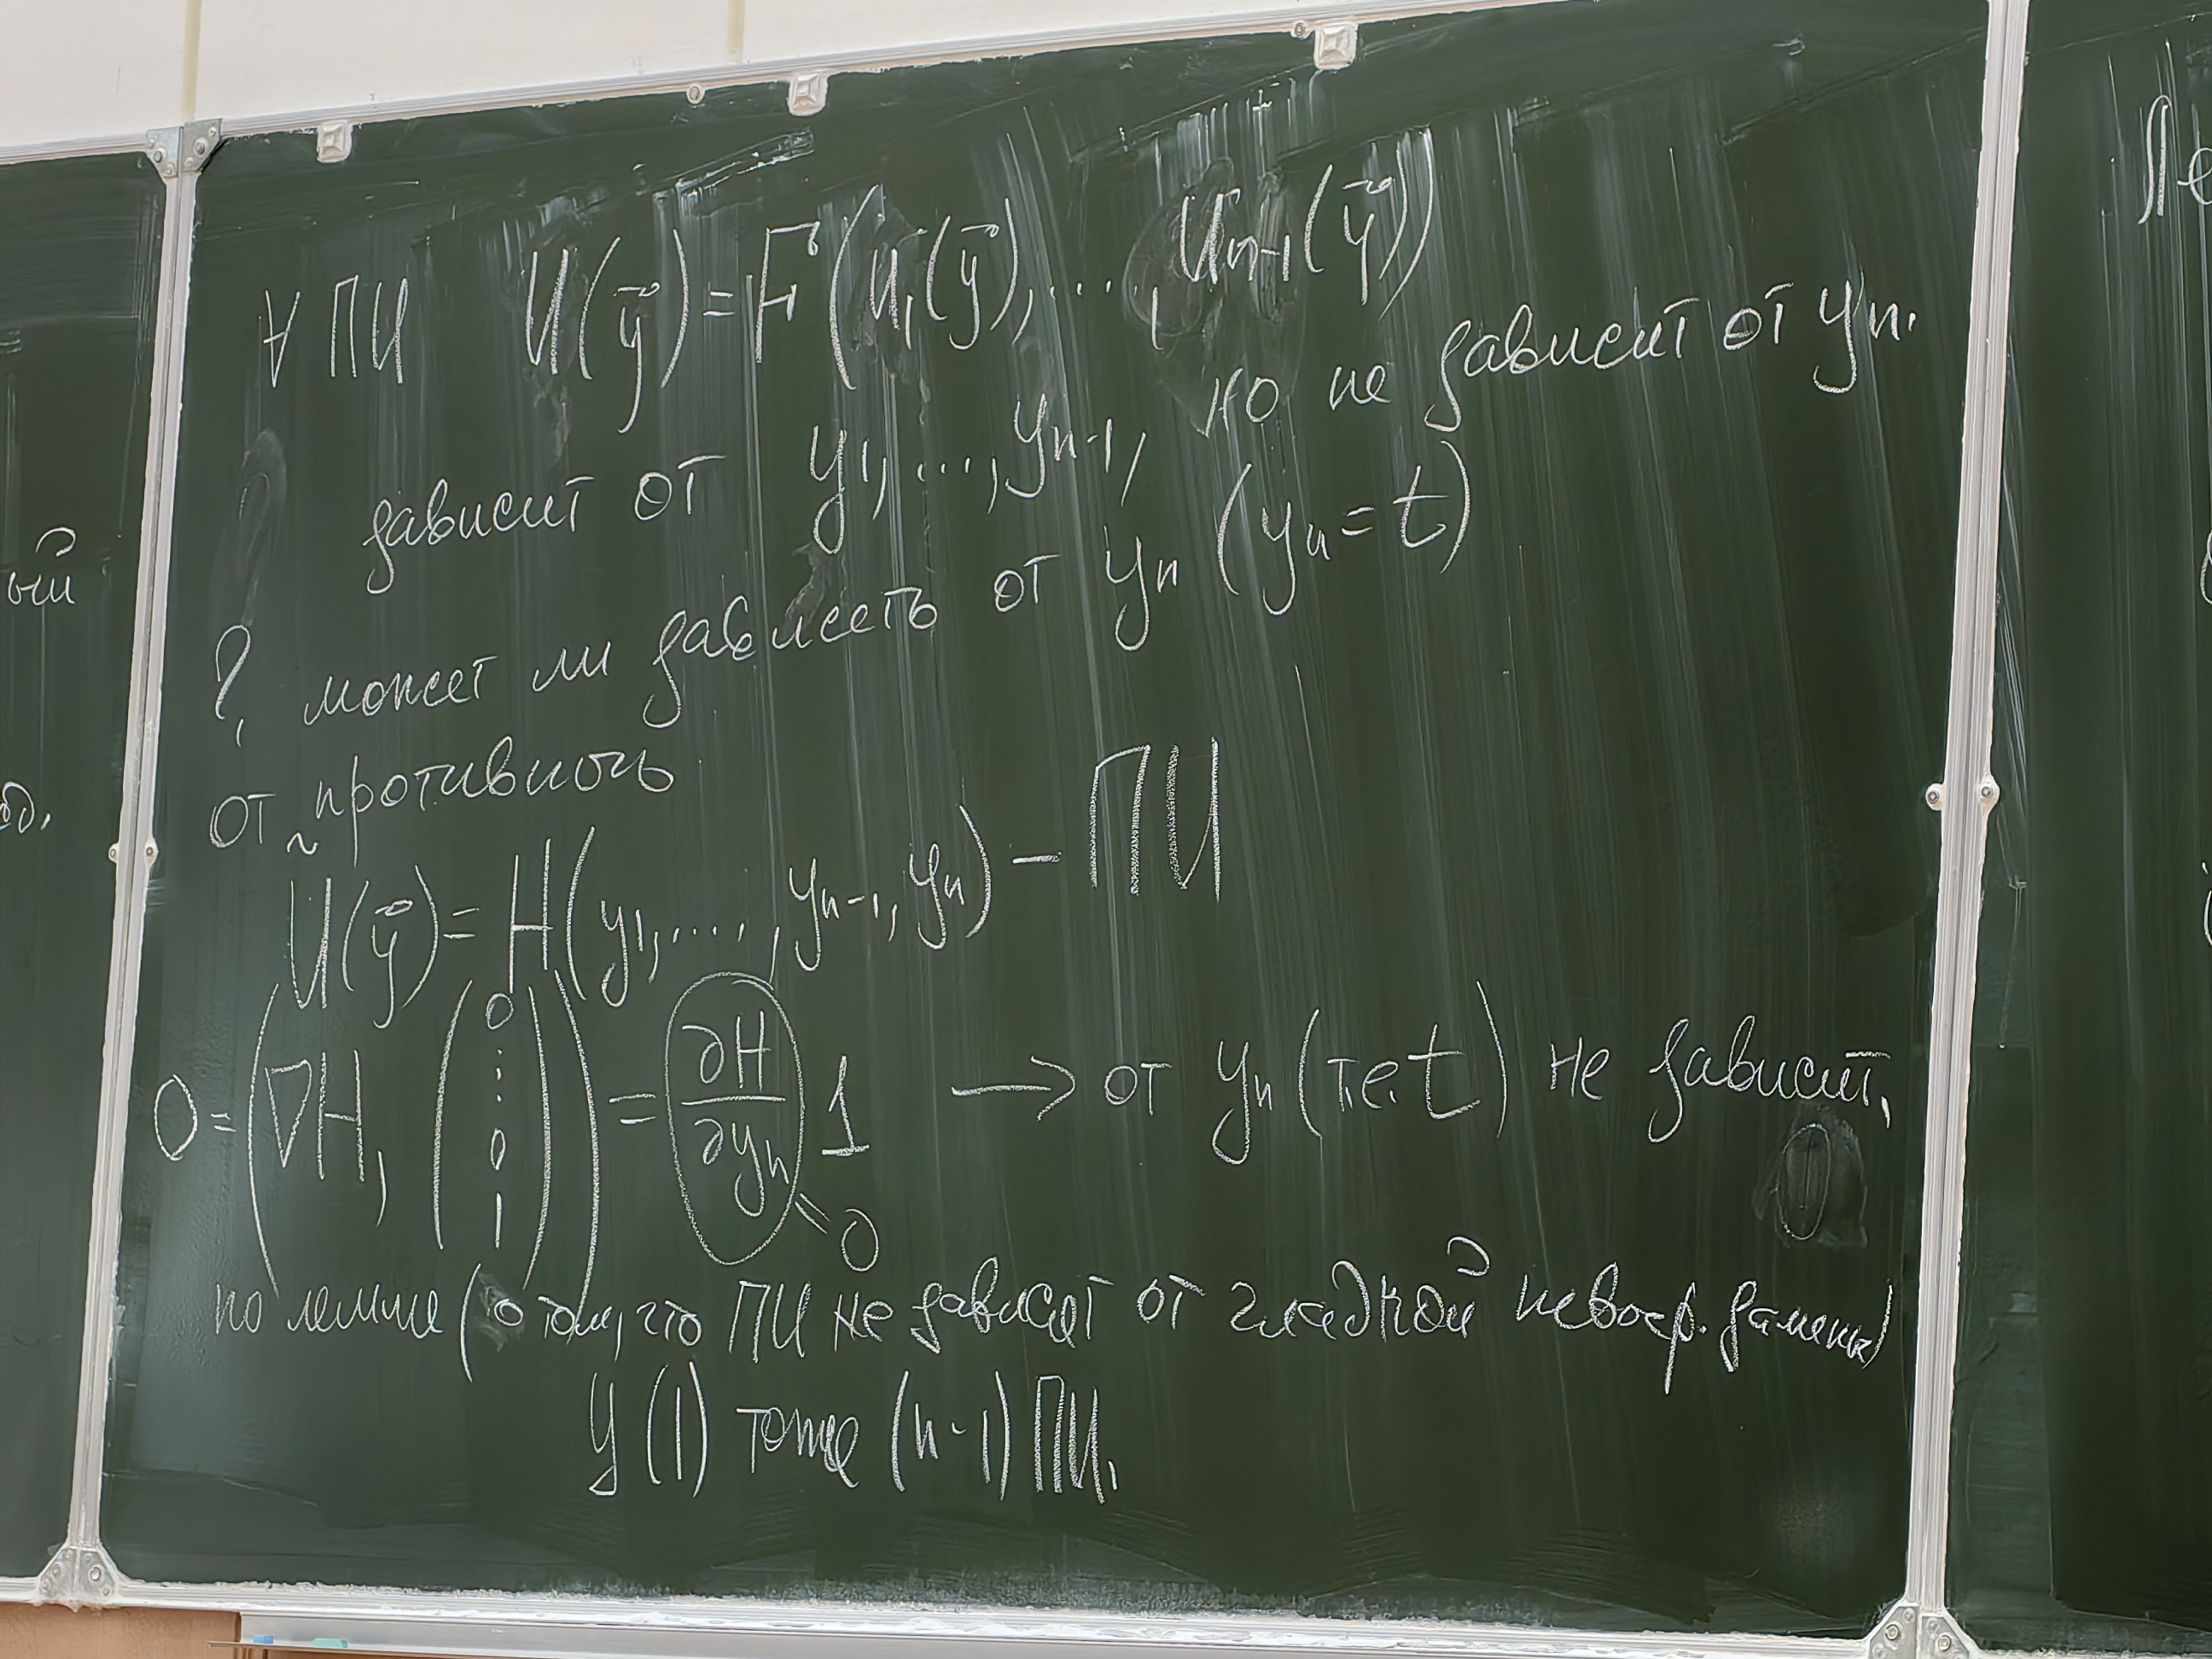 ∀ ПИ U(y⃗) = F(u₁(y⃗), ...., Uₙ₋₁(y⃗))
зависит от y₁, ..., yₙ₋₁, но не зависит от yₙ.
? может ли зависеть от yₙ (yₙ = t)
от противного
Ũ(y⃗) = H(y₁, ...., yₙ₋₁, yₙ) – ПИ
0 = (∇H, (0 ⋮ 0 1)) = ∂H/∂yₙ 1 → от yₙ (т.е. t) не зависит,
= 0
по лемме (о том, что ПИ не зависят от гладкой невыр. замены)
У (1) тоже (n-1) ПИ.